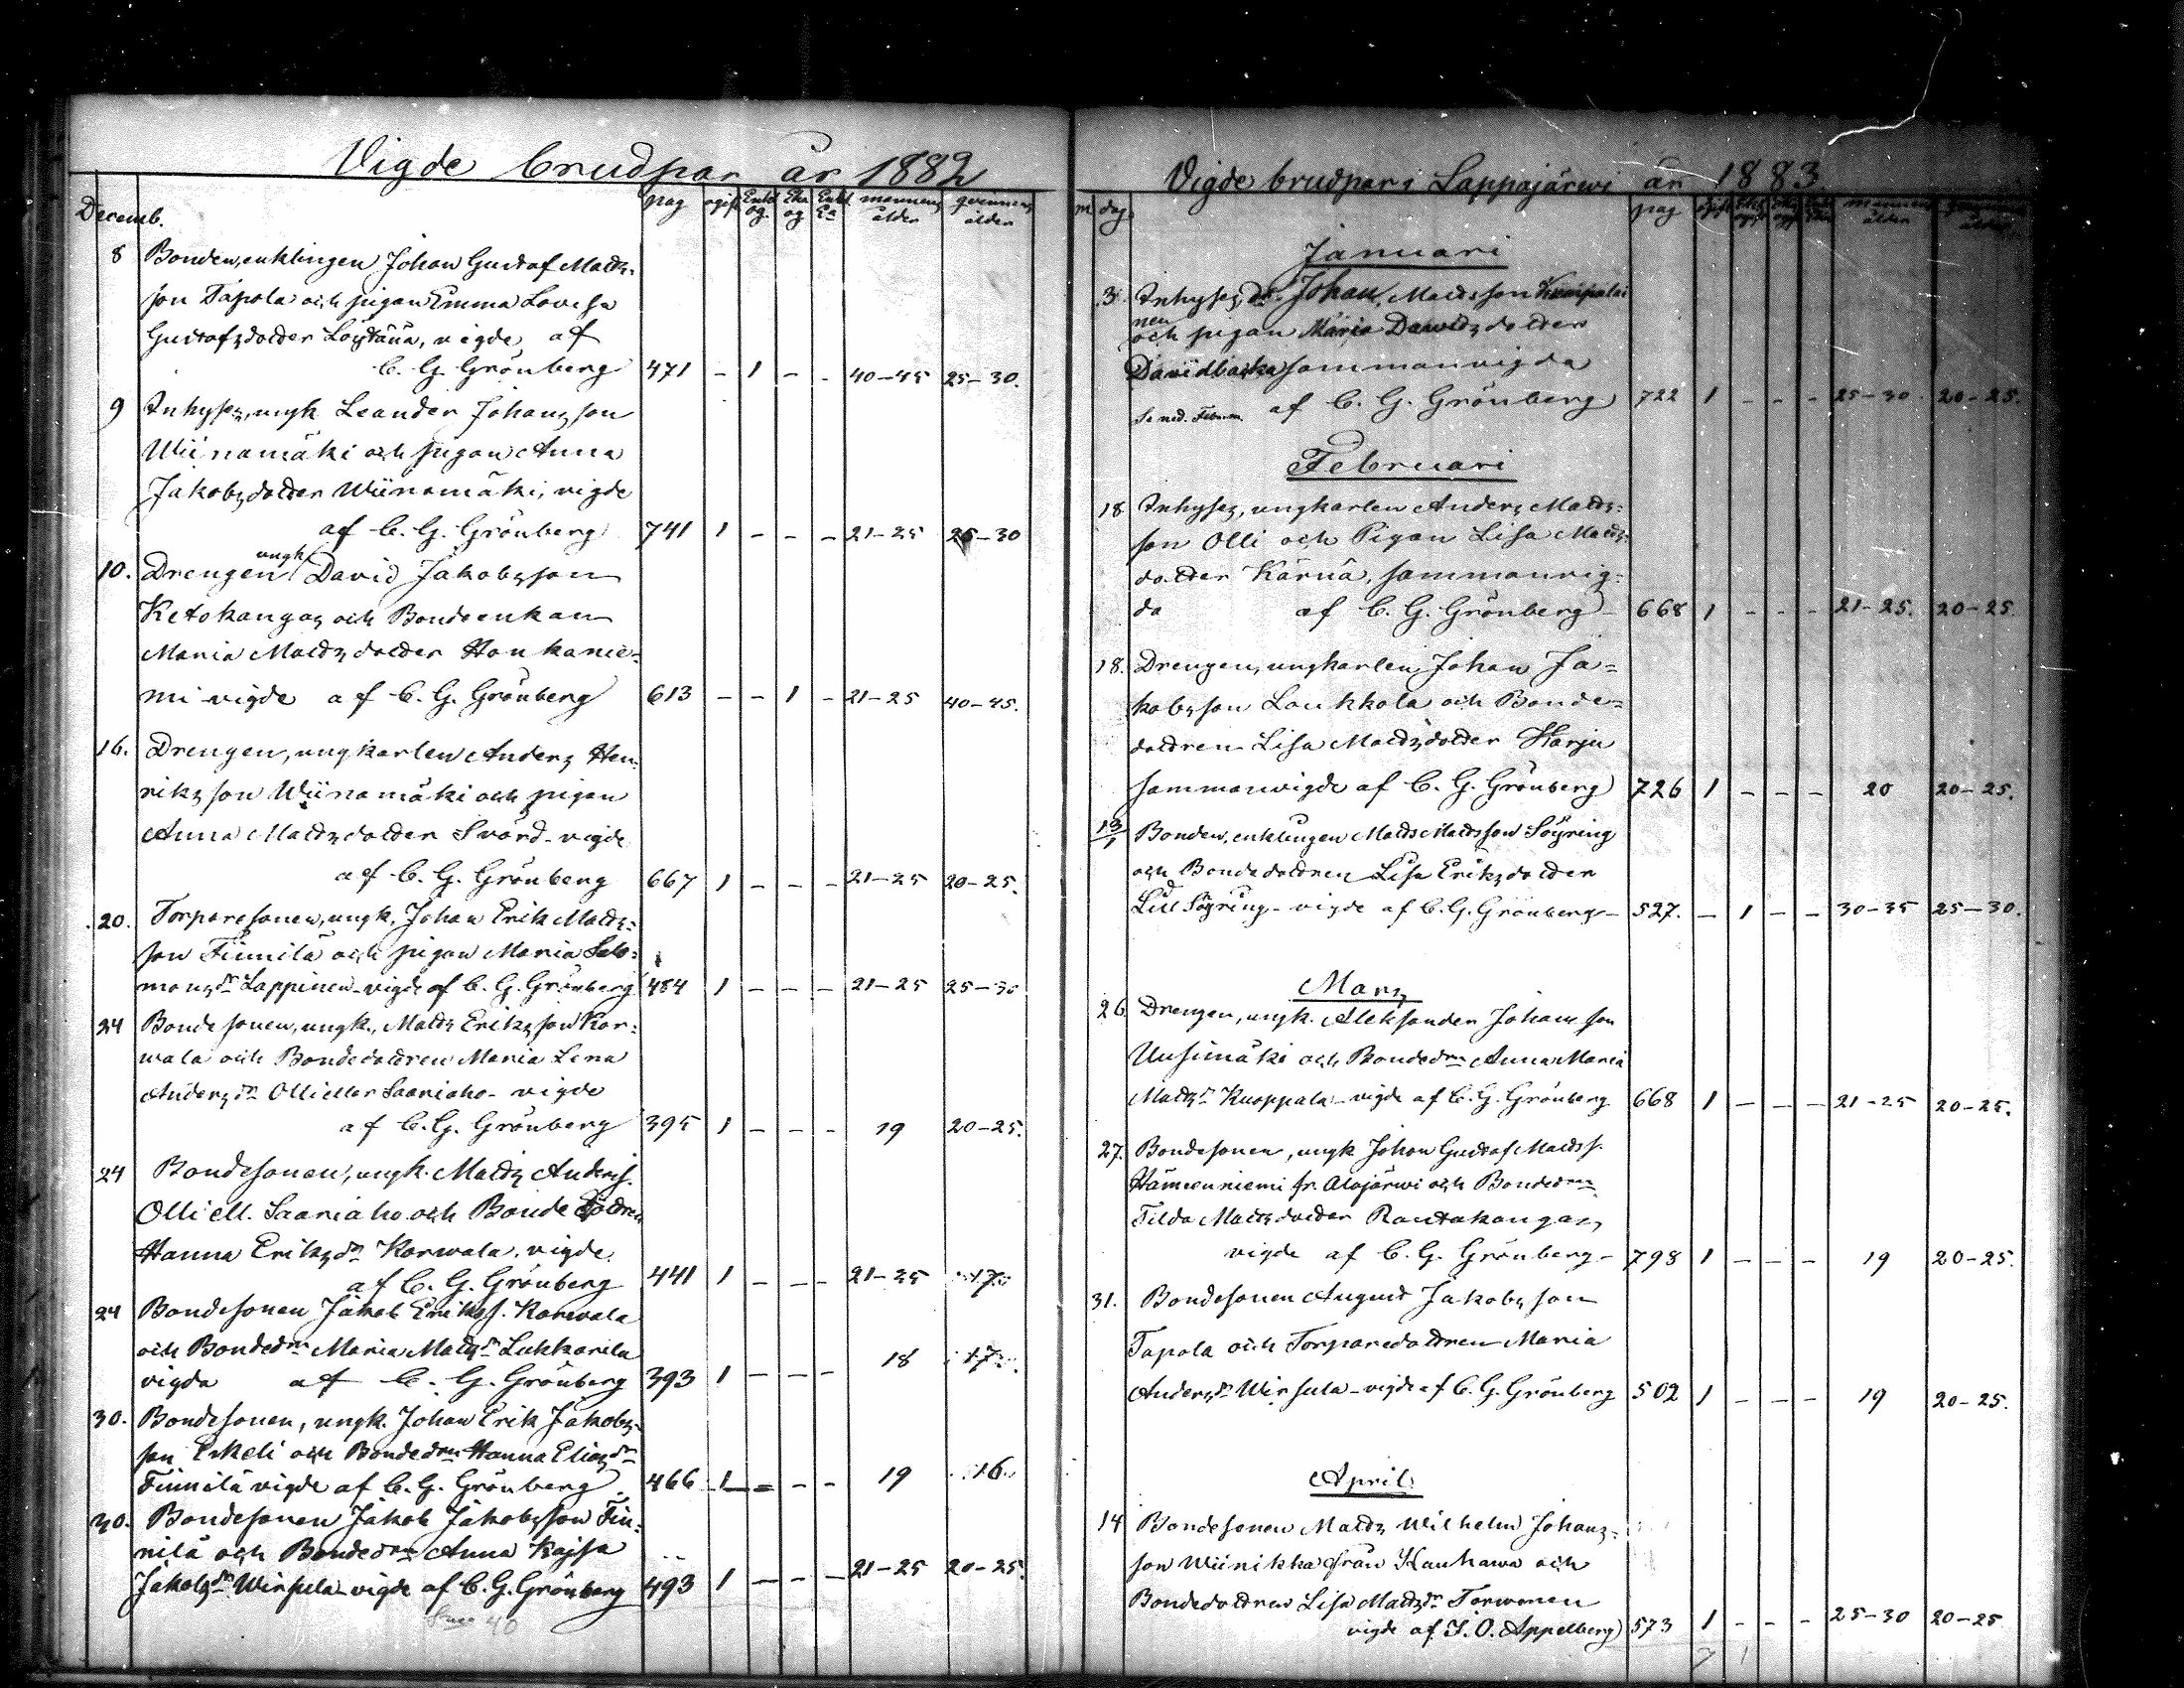 Vigde brudpar år 1882
Decemb. pag ogift Enkl og. Eka og Enkl Ea mannens ålder qvinnans ålder
8 Bonden, enklingen Johan Gustaf Matts-
son Tapola och pigan Emma Lovisa
Gustafsdotter Löytänä, vigde af
C. G. Grönberg 471 - 1 - - 40-45 25-30.
9 Inhyses, ungk Leander Johansson
Wiinamäki och pigan Anna
Jakobsdotter Wiinamäki, vigde
af C. G. Grönberg 741 1 - - - 21-25 25-30
ungk
10. Drengen David Jakobsson
Ketokangas och Bondeenkan
Maria Mattsdotter Honkanie-
mi vigde af C. G. Grönberg 613 - - 1 - 21-25 40-45.
16. Drengen, ungkarlen Anders Hen-
riksson Wiinamäki och pigan
Anna Mattsdotter Svärd - vigde
af C. G. Grönberg 667 1 - - - 21-25 20-25.
20. Torparesonen, ungk. Johan Erik Matts-
son Finnilä och pigan Maria Salo-
monsdr Lappinen - vigde af C. G. Grönberg 484 1 - - - 21-25 25-30
24 Bondesonen, ungk., Matts Eriksson Kor-
wala och Bondedottren Maria Lena
Andersdr Olli eller Saariaho - vigde
af C. G. Grönberg 395 1 - - - 19 20-25.
24 Bondesonen, ungk. Matts Anderss.
Olli ell. Saariaho och Bondedottren
Hanna Eriksdr Korwala, vigde
af C. G. Grönberg 441 1 - - - 21-25 17
24 Bondesonen Jakob Erikss. Korwala
och Bondedrn Maria Mattsdr Lukkarila
vigda af C. G. Grönberg 393 1 - - - 18 17
30. Bondesonen, ungk. Johan Erik Jakobs-
son Eskeli och Bondedrn Hanna Eliasdr
Finnilä vigde af C. G. Grönberg 466 1 - - - 19 16
30. Bondesonen Jakob Jakobsson Fin-
nilä och Bondedrn Anna Kajsa
Jakobsdr Wirsula - vigde af C. G. Grönberg 493 1 - - - 21-25 20-25.
40
Vigde brudpar i Lappajärwi år 1883.
m. dag. pag mannens ålder qvinnans ålder
Januari
3. Inhyses dr. Johan Mattsson Kuoppalai
nen
och pigan Maria Davidsdotter
Davidbacka sammanvigda
Se ned. Februari. af C. G. Grönberg 722 1 - - - 25-30 20-25.
Februari
18 Inhyses, ungkarlen Anders Matts-
son Olli och Pigan Lisa Matts-
dotter Kärnä, sammanvig-
da af C. G. Grönberg - 668 1 - - - 21-25. 20-25.
18. Drengen, ungkarlen Johan Ja-
kobsson Loukkola och Bonde-
dottren Lisa Mattsdotter Harju
sammanvigde af C. G. Grönberg 726 1 - - - 20 20-25.
13/1 Bonden, enklingen Matts Mattsson Söyring
och Bondedottren Lisa Eriksdotter
Lill Söyring - vigde af C. G. Grönberg - 527. - 1 - - 30-35 25-30.
Mars
26. Drengen, ungk. Aleksander Johansson
Uusimäki och Bondedrn Anna Maria
Mattsdr Kuoppala - vigde af C. G. Grönberg 668 1 - - - 21-25 20-25.
27. Bondesonen, ungk Johan Gustaf Matss.
Hämeenniemi fr. Alajärwi och Bondedrn
Tilda Mattsdotter Rantakangas,
vigde af C. G. Grönberg - 798 1 - - - 19 20-25.
31. Bondesonen August Jakobsson
Tapola och Torparedottren Maria
Andersdr Wirsula - vigde af C. G. Grönberg 502 1 - - - 19 20-25.
April
14 Bondesonen Matts Wilhelm Johans-
son Wiinikka från Kauhawa och
Bondedottren Lisa Mattsdr Torwonen
vigde af J. O. Appelberg 573 1 - - - 25-30 20-25
7 1